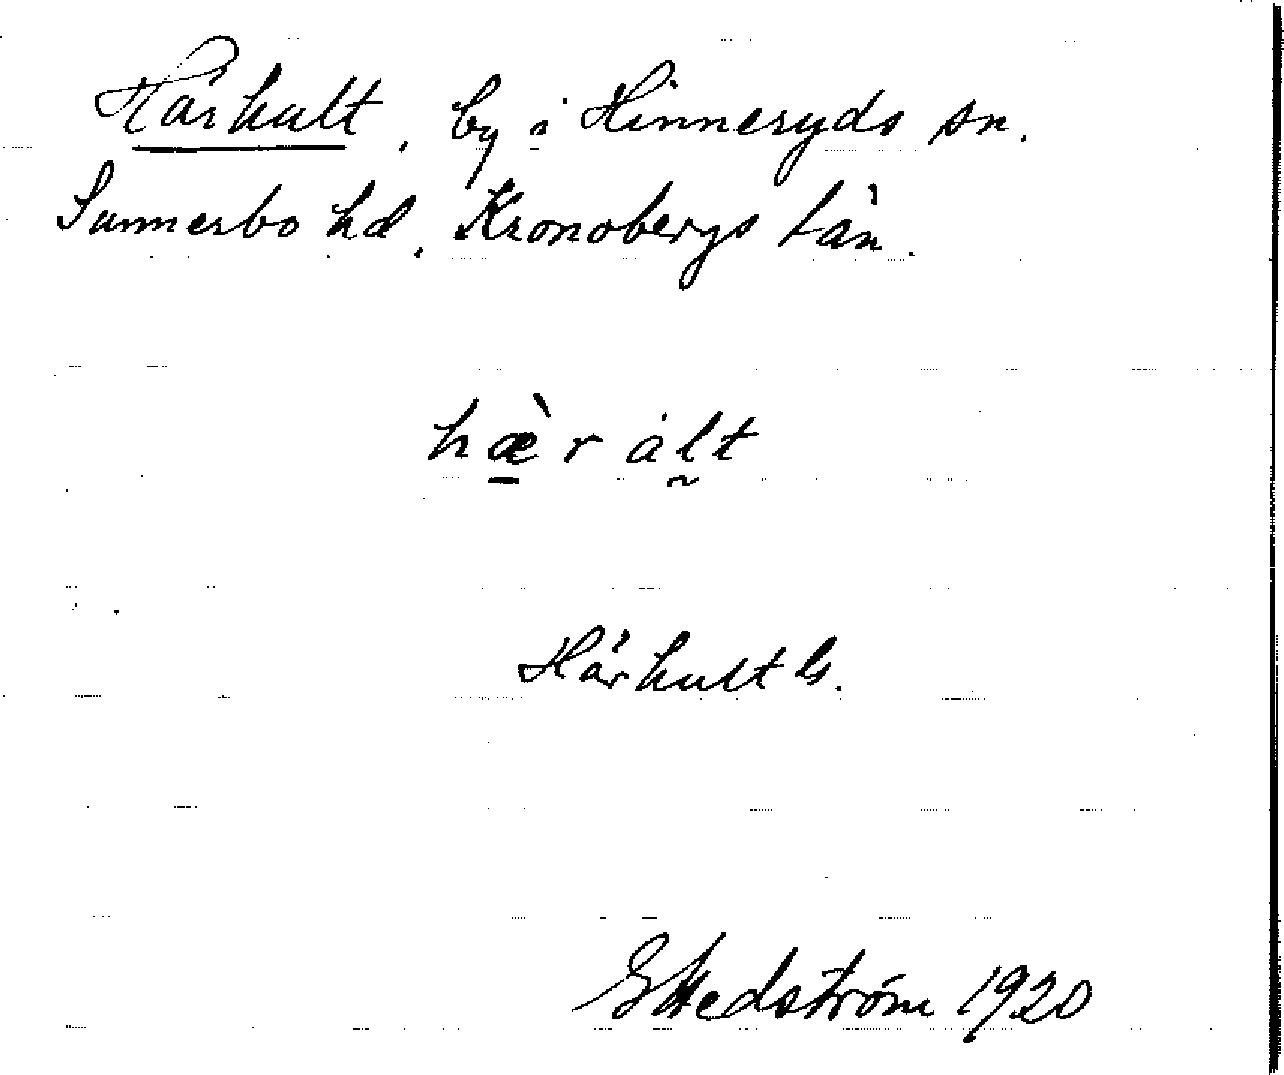 Härhult, by i Hinneryds sn.
Sunnerbo hd, Kronobergs län.
hæ̠̀r ål̰t
Härhult ls.
G Hedström 1920